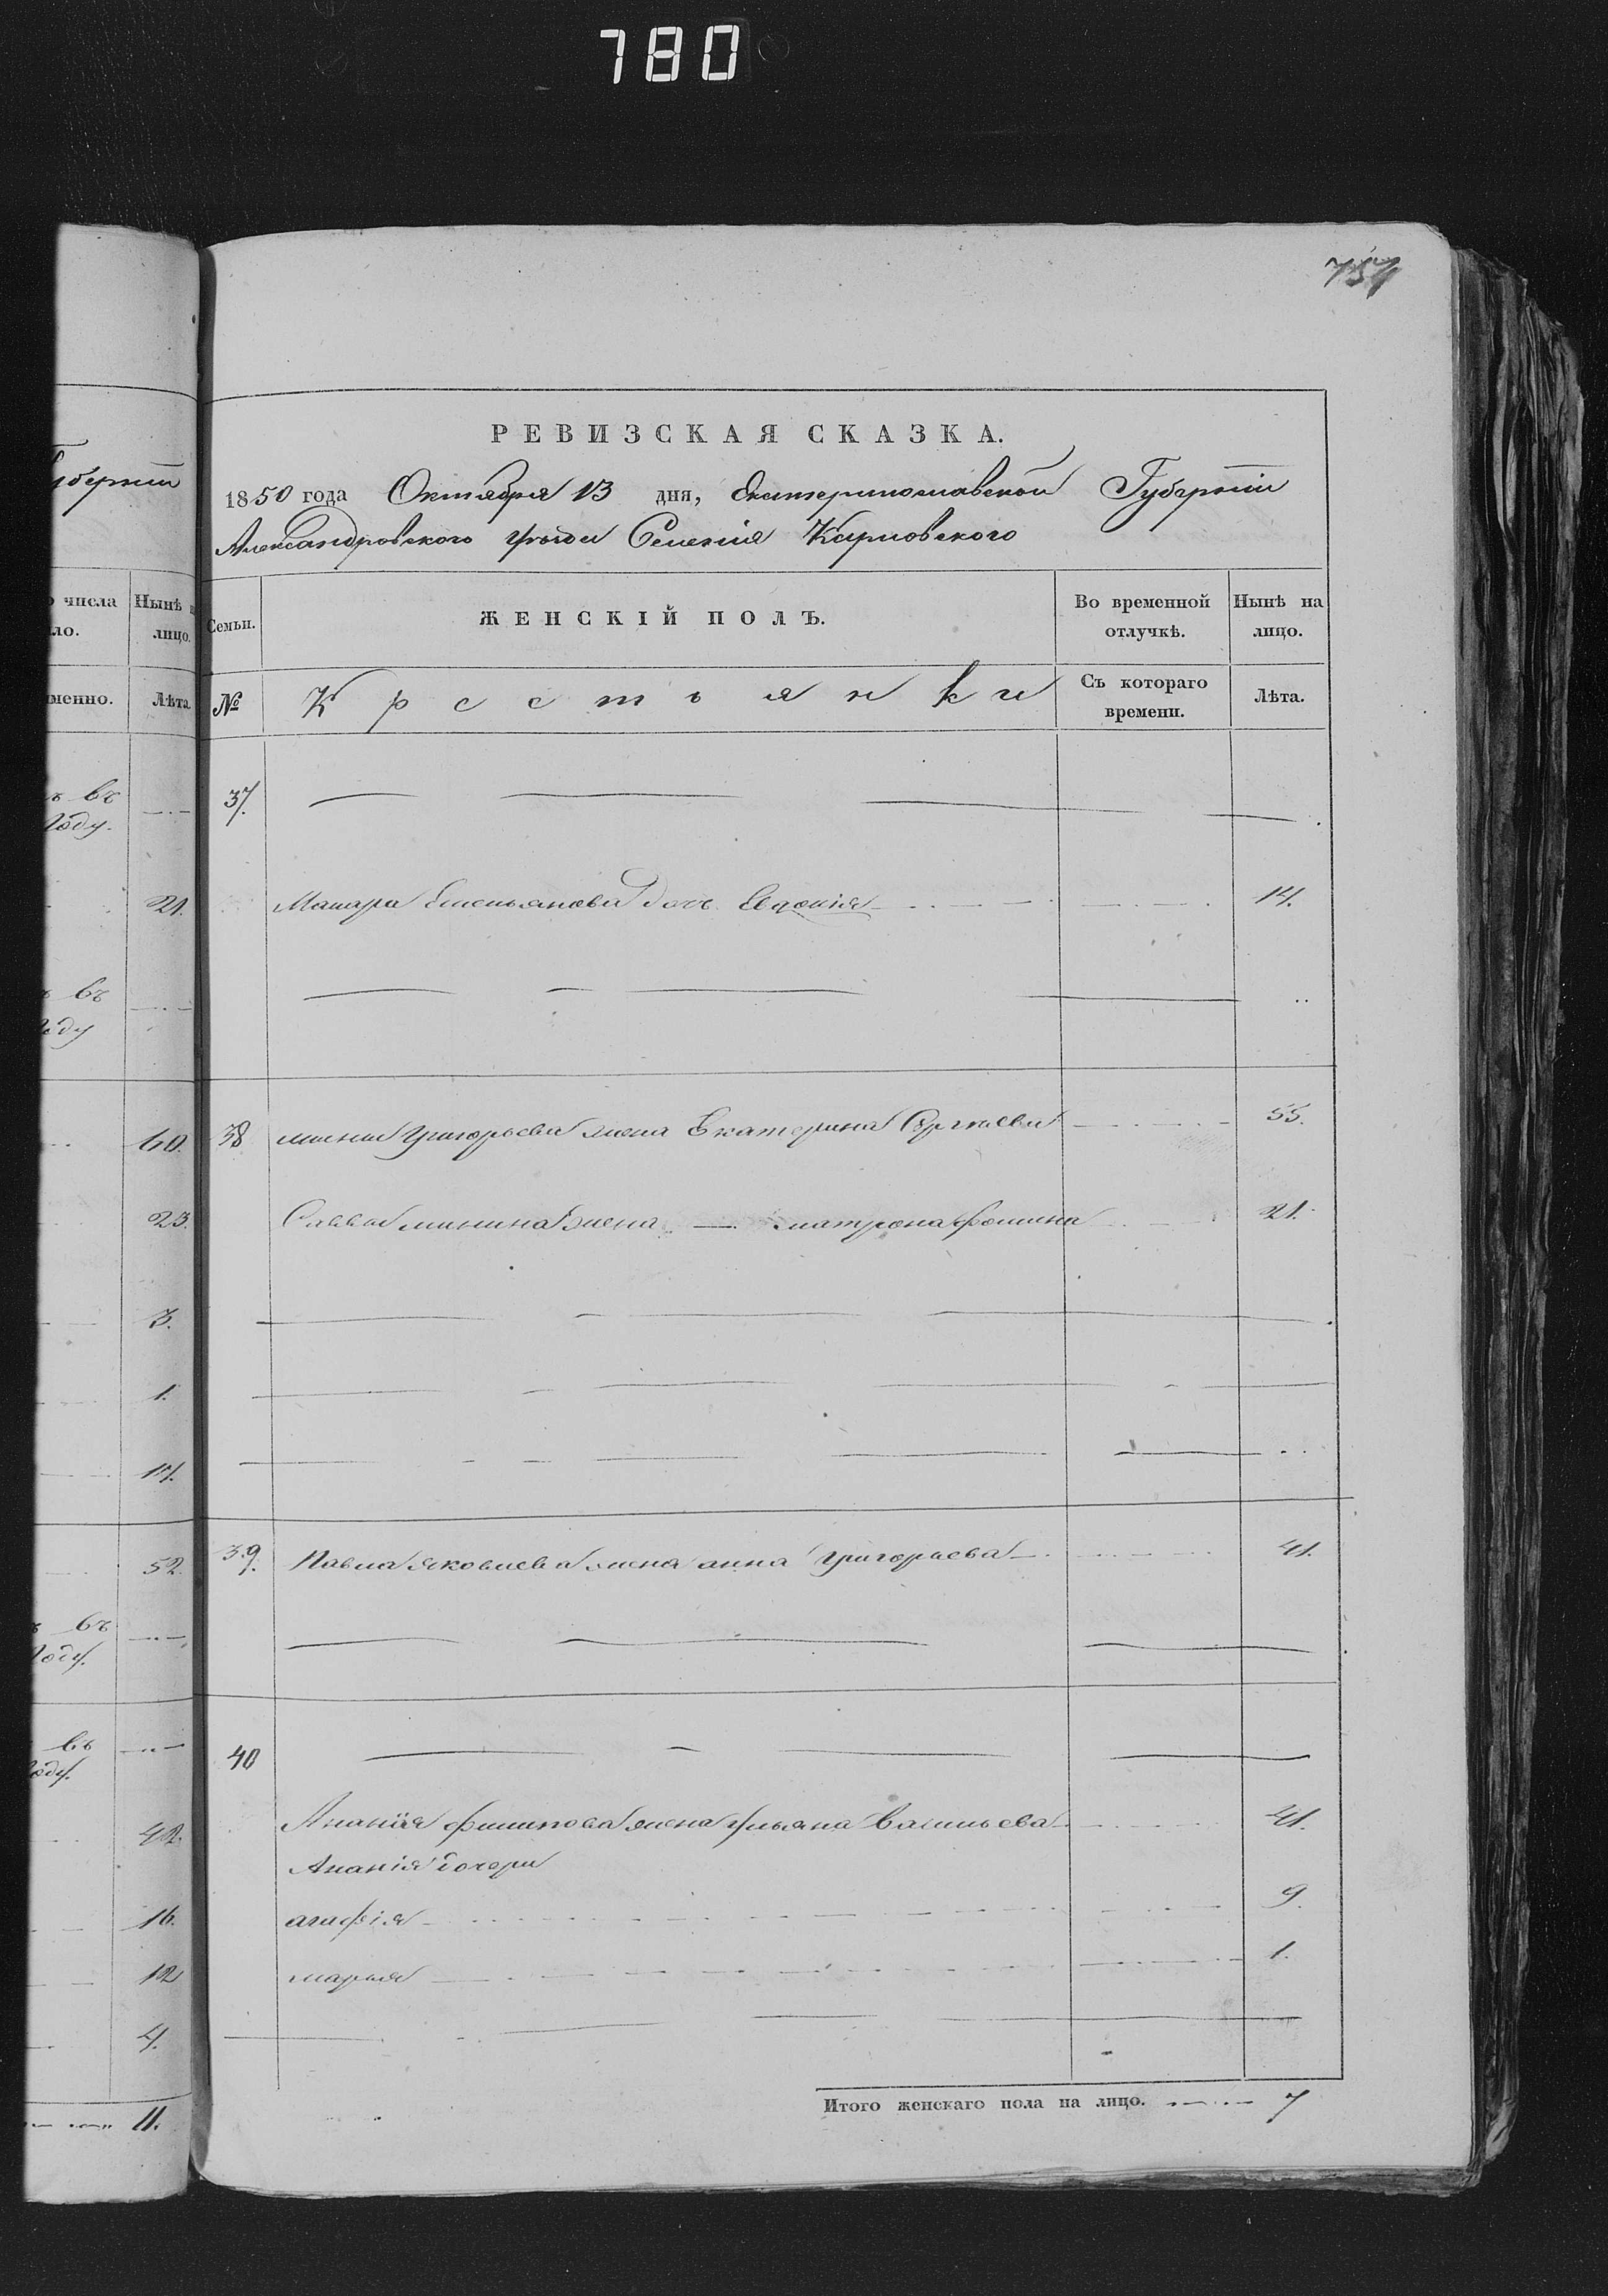 780
751
РЕВИЗСКАЯ СКАЗКА.
1850 года Октября 13 дня, Екатеринославской Губерніи
Александровского уѣзда Селенія Карловского
Семьи. ЖЕНСКІЙ ПОЛЪ. Во временной отлучкѣ. Нынѣ на лицо.
№ Крестьянки Съ котораго времени. Лѣта.
37.
Макара Емельянова дочь Евдокія 14.
38 мины Григорьева жена Екатерина Сергѣева 55.
Саввы минина жена — матрона фомина 21.
39. Павла Яковлева жена анна Григорьева 41.
40
Ананія филипова жена ульяна Васильева 41.
Ананія дочери
агафія 9.
марья 1.
Итого женскаго пола на лицо. 7
числа Нынѣ
ло. лицо.
менно. Лѣта
въ
Году.
21.
въ
60.
23.
3.
1.
17.
52.
въ
въ
42.
16.
12
4.
11.